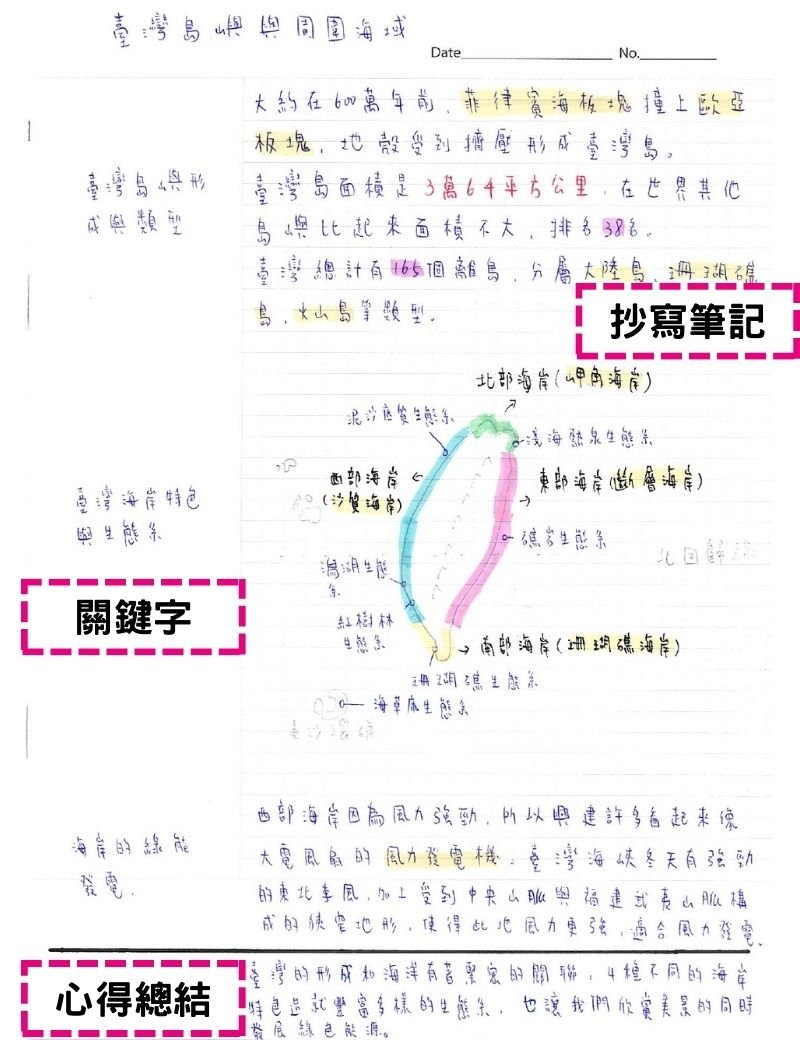 臺灣島嶼與周圍海域
Date No.
大約在600萬年前,菲律賓海板塊撞上歐亞
板塊,地殼受到擠壓形成臺灣島。
臺灣島嶼形
成與類型
臺灣島面積是3萬64平方公里,在世界其他
島嶼比起來面積不大,排名38名。
臺灣總計有165個離島,分屬大陸島、珊瑚礁
島、火山島等類型。
抄寫筆記
北部海岸(岬角海岸)
泥沙底質生態系
淺海熱泉生態系
西部海岸
(沙質海岸)
東部海岸(斷層海岸)
臺灣海岸特色
與生態系
礁岩生態系
北回歸線
潟湖生態
系
關鍵字
紅樹林
生態系
南部海岸(珊瑚礁海岸)
珊瑚礁生態系
海草床生態系
西部海岸因為風力強勁,所以興建許多看起來像
大電風扇的風力發電機。臺灣海峽冬天有強勁
的東北季風,加上受到中央山脈與福建武夷山脈構
成的狹窄地形,使得此地風力更強,適合風力發電。
海岸的綠能
發電.
心得總結
臺灣的形成和海洋有著緊密的關聯,4種不同的海岸
特色造就豐富多樣的生態系,也讓我們欣賞美景的同時
發展綠色能源。